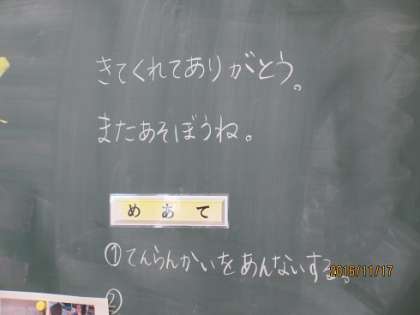 きてくれてありがとう。
またあそぼうね。
めあて
①てんらんかいをあんないする。
2015/11/17
②